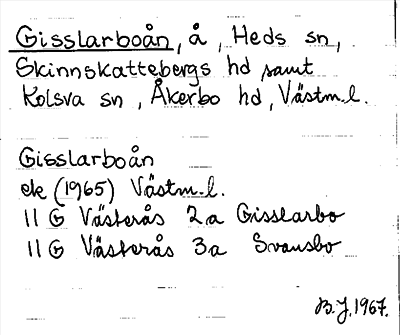 Gisslarboån, å, Heds sn,
Skinnskattebergs hd samt
Kolsva sn, Åkerbo hd, Västm.l.
Gisslarboån
ek (1965) Västm.l.
11 G Västerås 2a Gisslarbo
11 G Västerås 3a Svansbo
B.J. 1967.